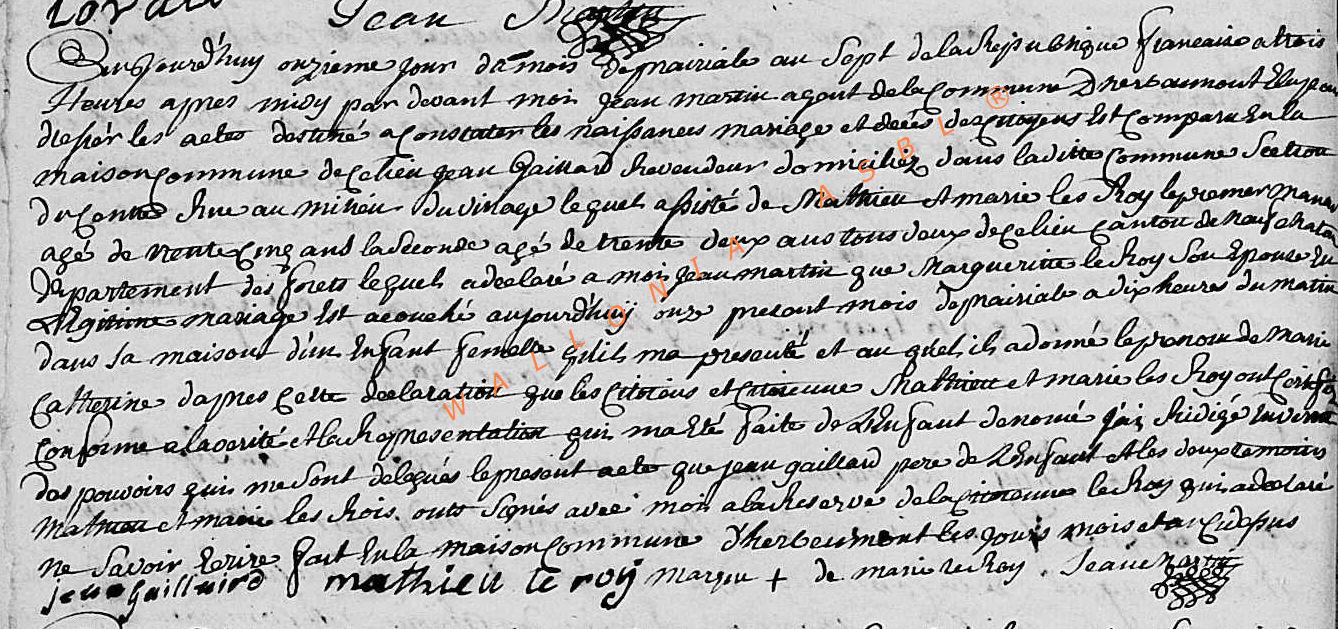 Jean Martin
Cejourd'huy onzieme jour du mois de prairiale au sept de la Republique francaise a trois
Heures apres midy par devant moi jean martin agent de la Commune D'herbeumont Elu pour
dresser les actes destiné a Constater les naissances mariage et decés des Citoyens Est Comparu En la
maison Commune de Ce lieu jean Gaillard Revendeur domiciliez dans laditte Commune Section
du Centre Rue au milieu du vilage lequel assisté de Mathieu et marie les Roy le premier
agé de trente Cinq ans la Seconde agé de trente deux ans tous deux de Ce lieu Canton de Neufchateau
departement des forets lequel a declaré a moi jean martin que Margueritte le Roy Son Epouse En
Legitime mariage Est acouché aujourd'huy onze present mois de prairiale a dix heures du matin
dans Sa maison d'un Enfant femelle qu'il ma presenté et au quel il a donné le prenom de Marie
Catherine dapres Cette declaration que les Citoiens et Citoienne Mathieu et marie les Roy ont Certifiez
Conforme a la verité et la Representation qui ma Eté faite de L'Enfant denomé j'ai Redigé En vertu
des pouvoirs qui me Sont delegués le present acte que jean gaillard pere de L'Enfant et les deux temoins
Mathieu et marie les Rois onts Signés avec moi a la Reserve de la Citoienne le Roy qui a declaré
ne Savoir Ecrire fait En la maison Commune d'herbeumont les jours mois et an Cidessus
jean Gaillaird mathieu le roy marque + de marie le Roy Jean Martin
WALLONIA ASBL ®